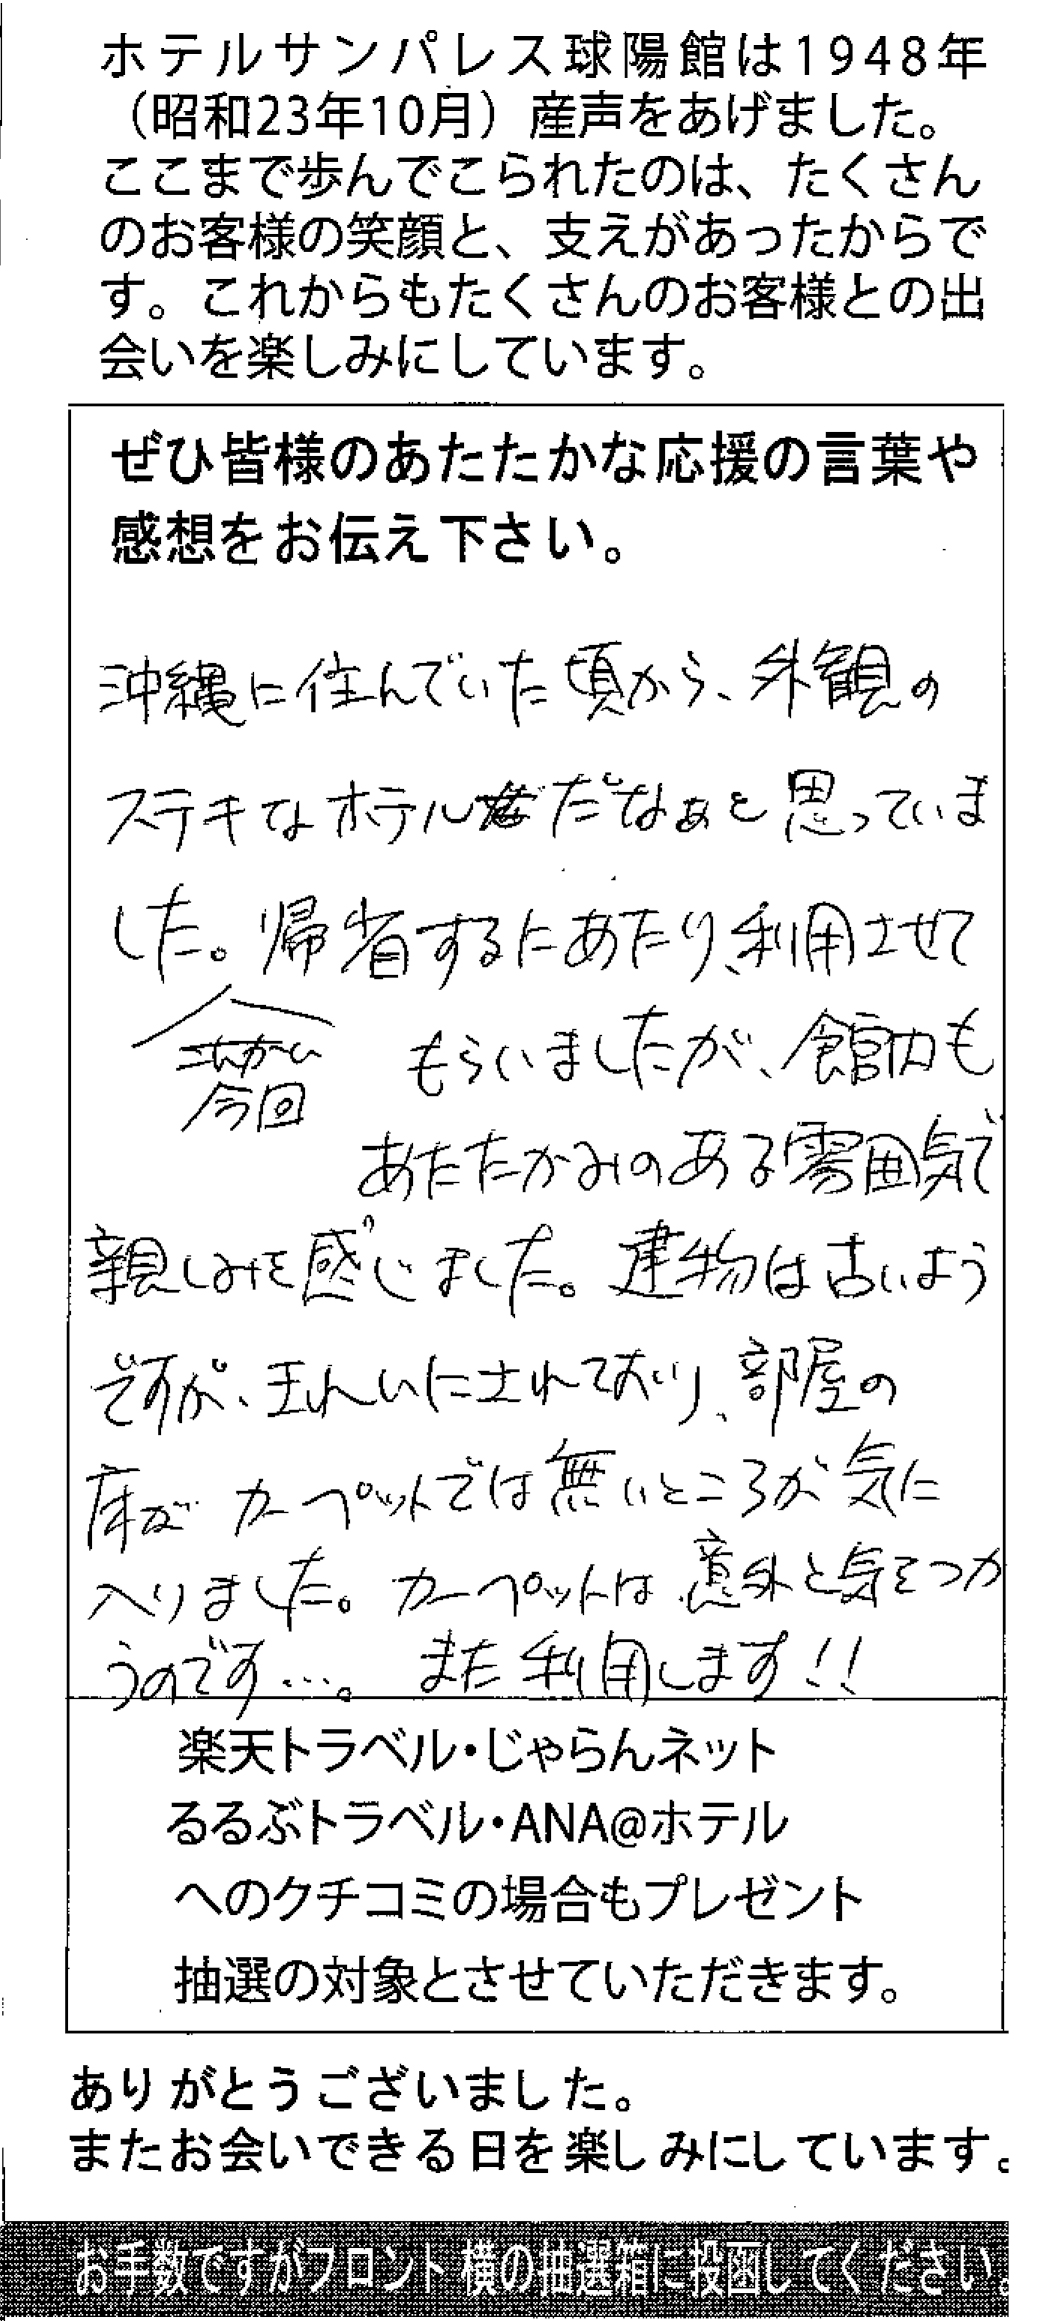 ホテルサンパレス球陽館は1948年
（昭和23年10月）産声をあげました。
ここまで歩んでこられたのは、たくさん
のお客様の笑顔と、支えがあったからで
す。これからもたくさんのお客様との出
会いを楽しみにしています。
ぜひ皆様のあたたかな応援の言葉や
感想をお伝え下さい。
沖縄に住んでいた頃から、外観の
ステキなホテルだなぁと思っていま
した。帰省するにあたり、利用させて
今回
もらいましたが、館内も
あたたかみのある雰囲気で
親しみを感じました。建物は古いよう
ですが、きれいにされており、部屋の
床がカーペットでは無いところが気に
入りました。カーペットは意外と気をつか
うのです…。また利用します!!
楽天トラベル・じゃらんネット
るるぶトラベル・ANA@ホテル
へのクチコミの場合もプレゼント
抽選の対象とさせていただきます。
ありがとうございました。
またお会いできる日を楽しみにしています。
お手数ですがフロント横の抽選箱に投函してください。